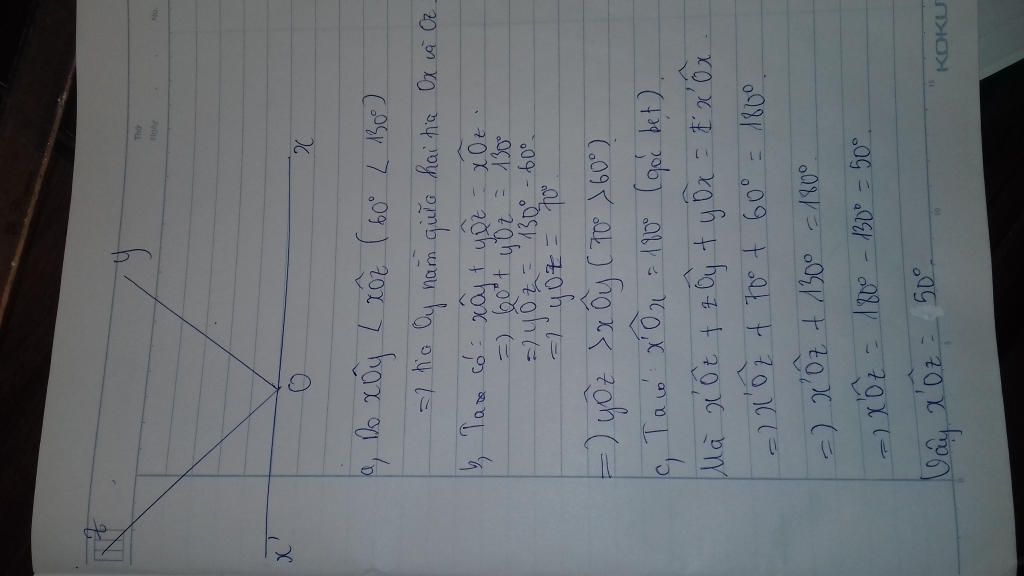 Thứ
Ngày
No.
z
y
x'
O
x
a, Do xÔy < xÔz (60° < 130°)
=) tia Oy nằm giữa hai tia Ox và Oz.
b, Ta có: xÔy + yÔz = xÔz.
=) 60° + yÔz = 130°
=) yÔz = 130° - 60°.
=) yÔz = 70°
=) yÔz > xÔy (70° > 60°)
c, Ta có: x'Ôx = 180° (góc bẹt)
Mà x'Ôz + zÔy + yÔx = x'Ôx.
=) x'Ôz + 70° + 60° = 180°
=) x'Ôz + 130° = 180°
=) x'Ôz = 180° - 130° = 50°
Vậy x'Ôz = 50°
KOKU